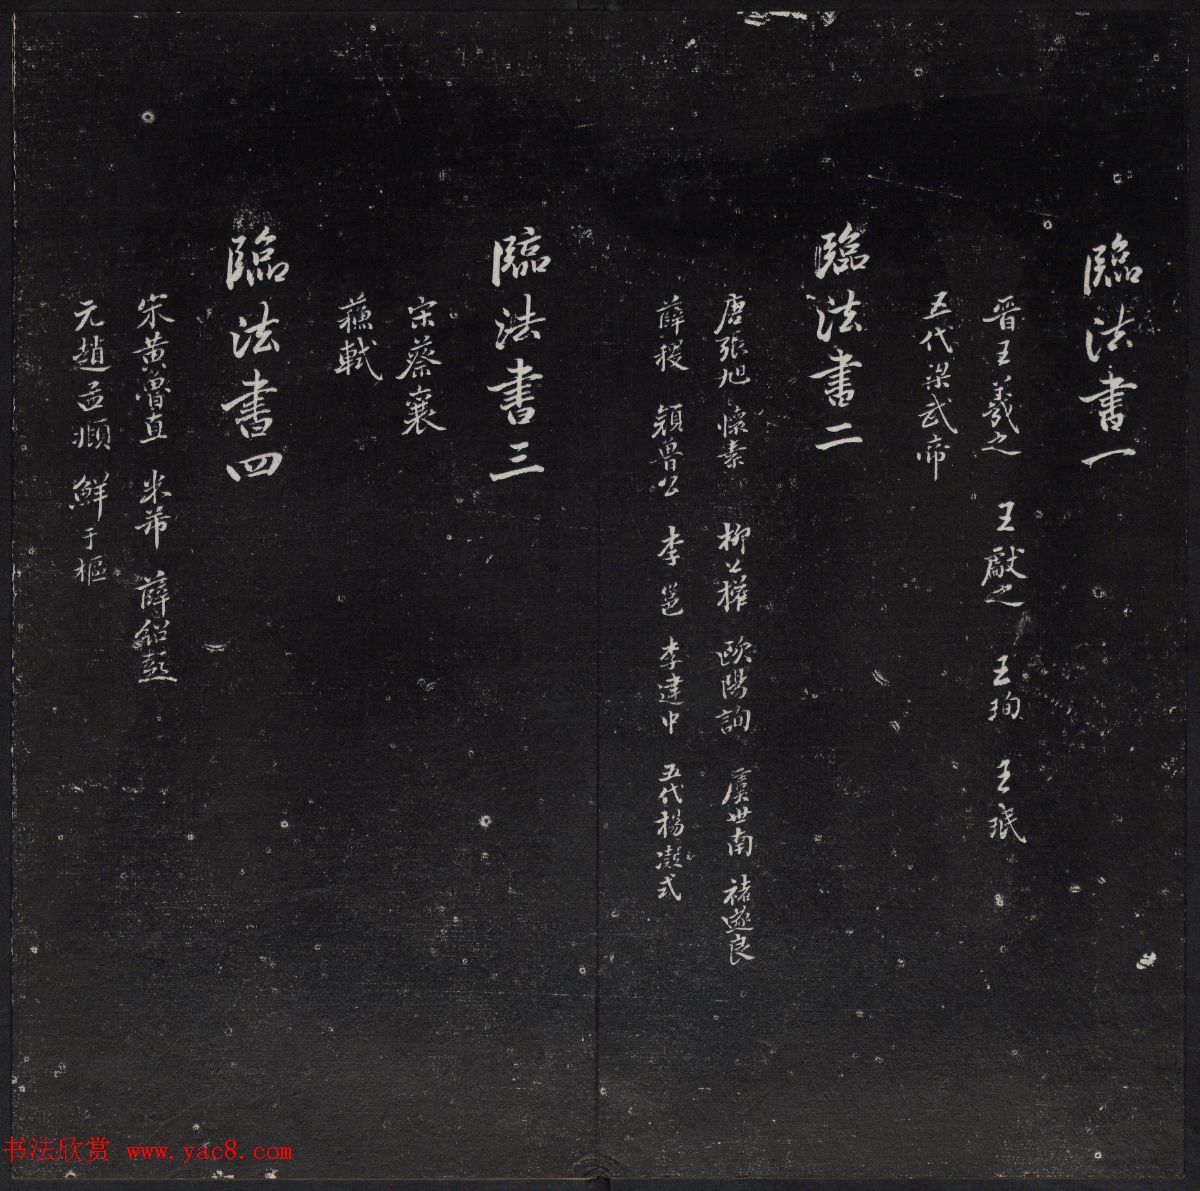 臨法書一
晉王羲之 王獻之 王珣 王珉
五代梁武帝
臨法書二
唐張旭 懷素 柳公權 歐陽詢 虞世南 褚遂良
薛稷 顏魯公 李邕 李建中 五代楊凝式
臨法書三
宋蔡襄
蘇軾
臨法書四
宋黃魯直 米芾 薛紹彭
元趙孟頫 鮮于樞
书法欣赏 www.yac8.com